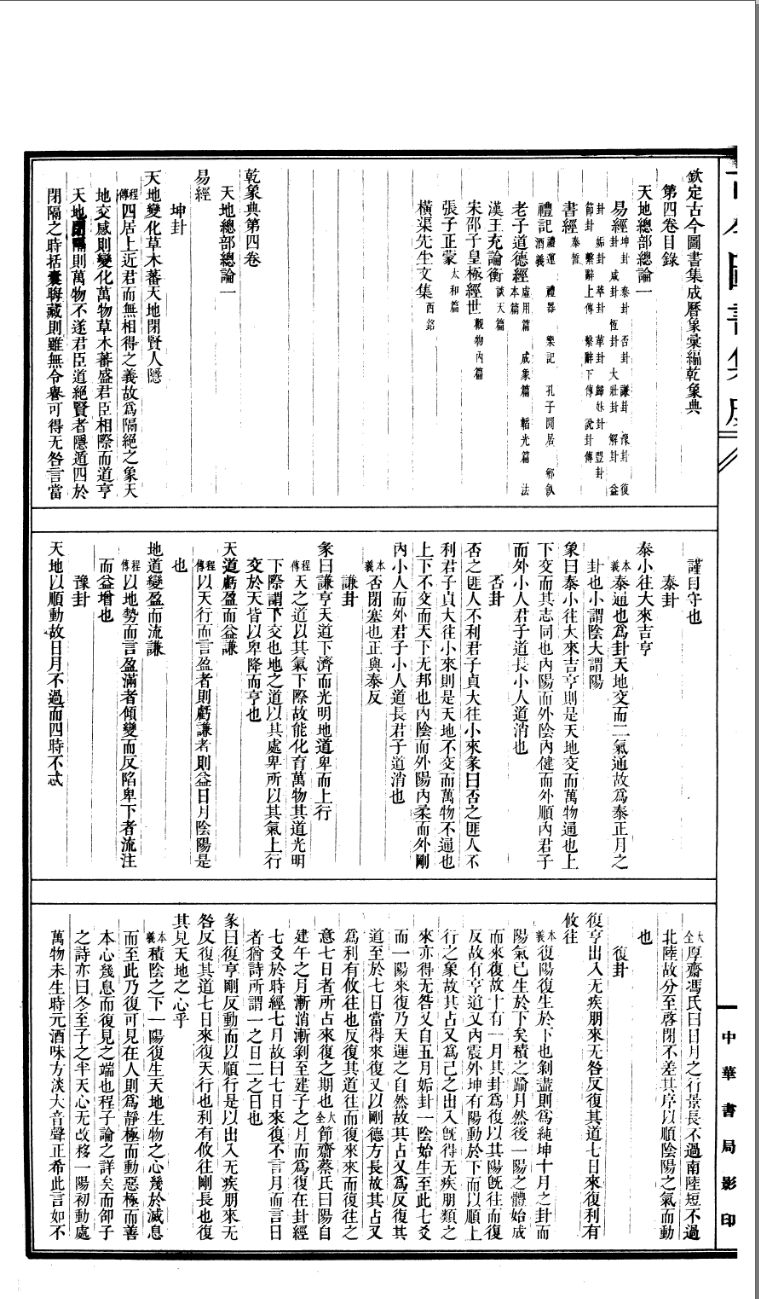 欽定古今圖書集成曆象彙編乾象典
第四卷目錄
天地總部總論一
易經坤卦 泰卦 否卦 謙卦 豫卦 復
卦 咸卦 恆卦 大壯卦 解卦 益
卦 姤卦 萃卦 革卦 歸妹卦 豐卦
節卦 繫辭上傳 繫辭下傳 說卦傳
書經泰誓
禮記禮運 禮器 樂記 孔子閒居 鄉飲
酒義
老子道德經虛用篇 成象篇 韜光篇 法
本篇
漢王充論衡談天篇
宋邵子皇極經世觀物內篇
張子正蒙太和篇
橫渠先生文集西銘
乾象典第四卷
天地總部總論一
易經
坤卦
天地變化草木蕃天地閉賢人隱
程傳四居上近君而無相得之義故爲隔絕之象天
地交感則變化萬物草木蕃盛君臣相際而道亨
天地閉隔則萬物不遂君臣道絕賢者隱遁四於
閉隔之時括囊晦藏則雖無令譽可得无咎言當
謹自守也
泰卦
泰小往大來吉亨
本義泰通也爲卦天地交而二氣通故爲泰正月之
卦也小謂陰大謂陽
彖曰泰小往大來吉亨則是天地交而萬物通也上
下交而其志同也內陽而外陰內健而外順內君子
而外小人君子道長小人道消也
否卦
否之匪人不利君子貞大往小來彖曰否之匪人不
利君子貞大往小來則是天地不交而萬物不通也
上下不交而天下无邦也內陰而外陽內柔而外剛
內小人而外君子小人道長君子道消也
本義否閉塞也正與泰反
謙卦
彖曰謙亨天道下濟而光明地道卑而上行
程傳天之道以其氣下際故能化育萬物其道光明
下際謂下交也地之道以其處卑所以其氣上行
交於天皆以卑降而亨也
天道虧盈而益謙
程傳以天行而言盈者則虧謙者則益日月陰陽是
也
地道變盈而流謙
程傳以地勢而言盈滿者傾變而反陷卑下者流注
而益增也
豫卦
天地以順動故日月不過而四時不忒
大全厚齋馮氏曰日月之行景長不過南陸短不過
北陸故分至啓閉不差其序以順陰陽之氣而動
也
復卦
復亨出入无疾朋來无咎反復其道七日來復利有
攸往
本義復陽復生於下也剝盡則爲純坤十月之卦而
陽氣已生於下矣積之踰月然後一陽之體始成
而來復故十有一月其卦爲復以其陽旣往而復
反故有亨道又內震外坤有陽動於下而以順上
行之象故其占又爲己之出入旣得无疾朋類之
來亦得无咎又自五月姤卦一陰始生至此七爻
而一陽來復乃天運之自然故其占又爲反復其
道至於七日當得來復又以剛德方長故其占又
爲利有攸往也反復其道往而復來來而復往之
意七日者所占來復之期也大全節齋蔡氏曰陽自
建午之月漸消漸剝至建子之月而爲復在卦經
七爻於時經七月故曰七日來復不言月而言日
者猶詩所謂一之日二之日也
彖曰復亨剛反動而以順行是以出入无疾朋來无
咎反復其道七日來復天行也利有攸往剛長也復
其見天地之心乎
本義積陰之下一陽復生天地生物之心幾於滅息
而至此乃復可見在人則爲靜極而動惡極而善
本心幾息而復見之端也程子論之詳矣而邵子
之詩亦曰冬至子之半天心无改移一陽初動處
萬物未生時元酒味方淡大音聲正希此言如不
中華書局影印